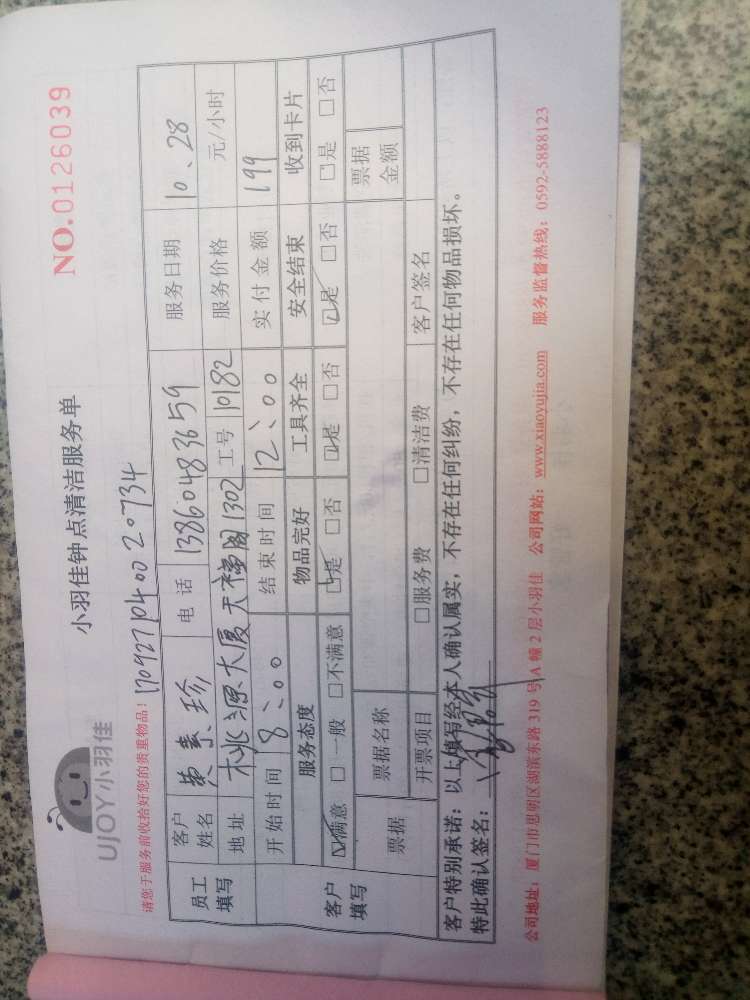 UJOY小羽佳
小羽佳钟点清洁服务单
NO.0126039
请您于服务前收拾好您的贵重物品!
员工填写
客户姓名 黄素珍 电话 13860483659 服务日期 10.28
地址 桃源大厦天福阁1302 工号 10182 服务价格 元/小时
开始时间 8:00 结束时间 12:00 实付金额 199
客户填写
服务态度 物品完好 工具齐全 安全结束 收到卡片
☑满意 □一般 □不满意 ☑是 □否 ☑是 □否 ☑是 □否 □是 □否
票据 票据名称 票据金额
开票项目 □服务费 □清洁费 客户签名
客户特别承诺:以上填写经本人确认属实,不存在任何纠纷,不存在任何物品损坏。
特此确认签名:
公司地址:厦门市思明区湖滨东路319号A幢2层小羽佳 公司网站:www.xiaoyujia.com 服务监督热线:0592-5888123